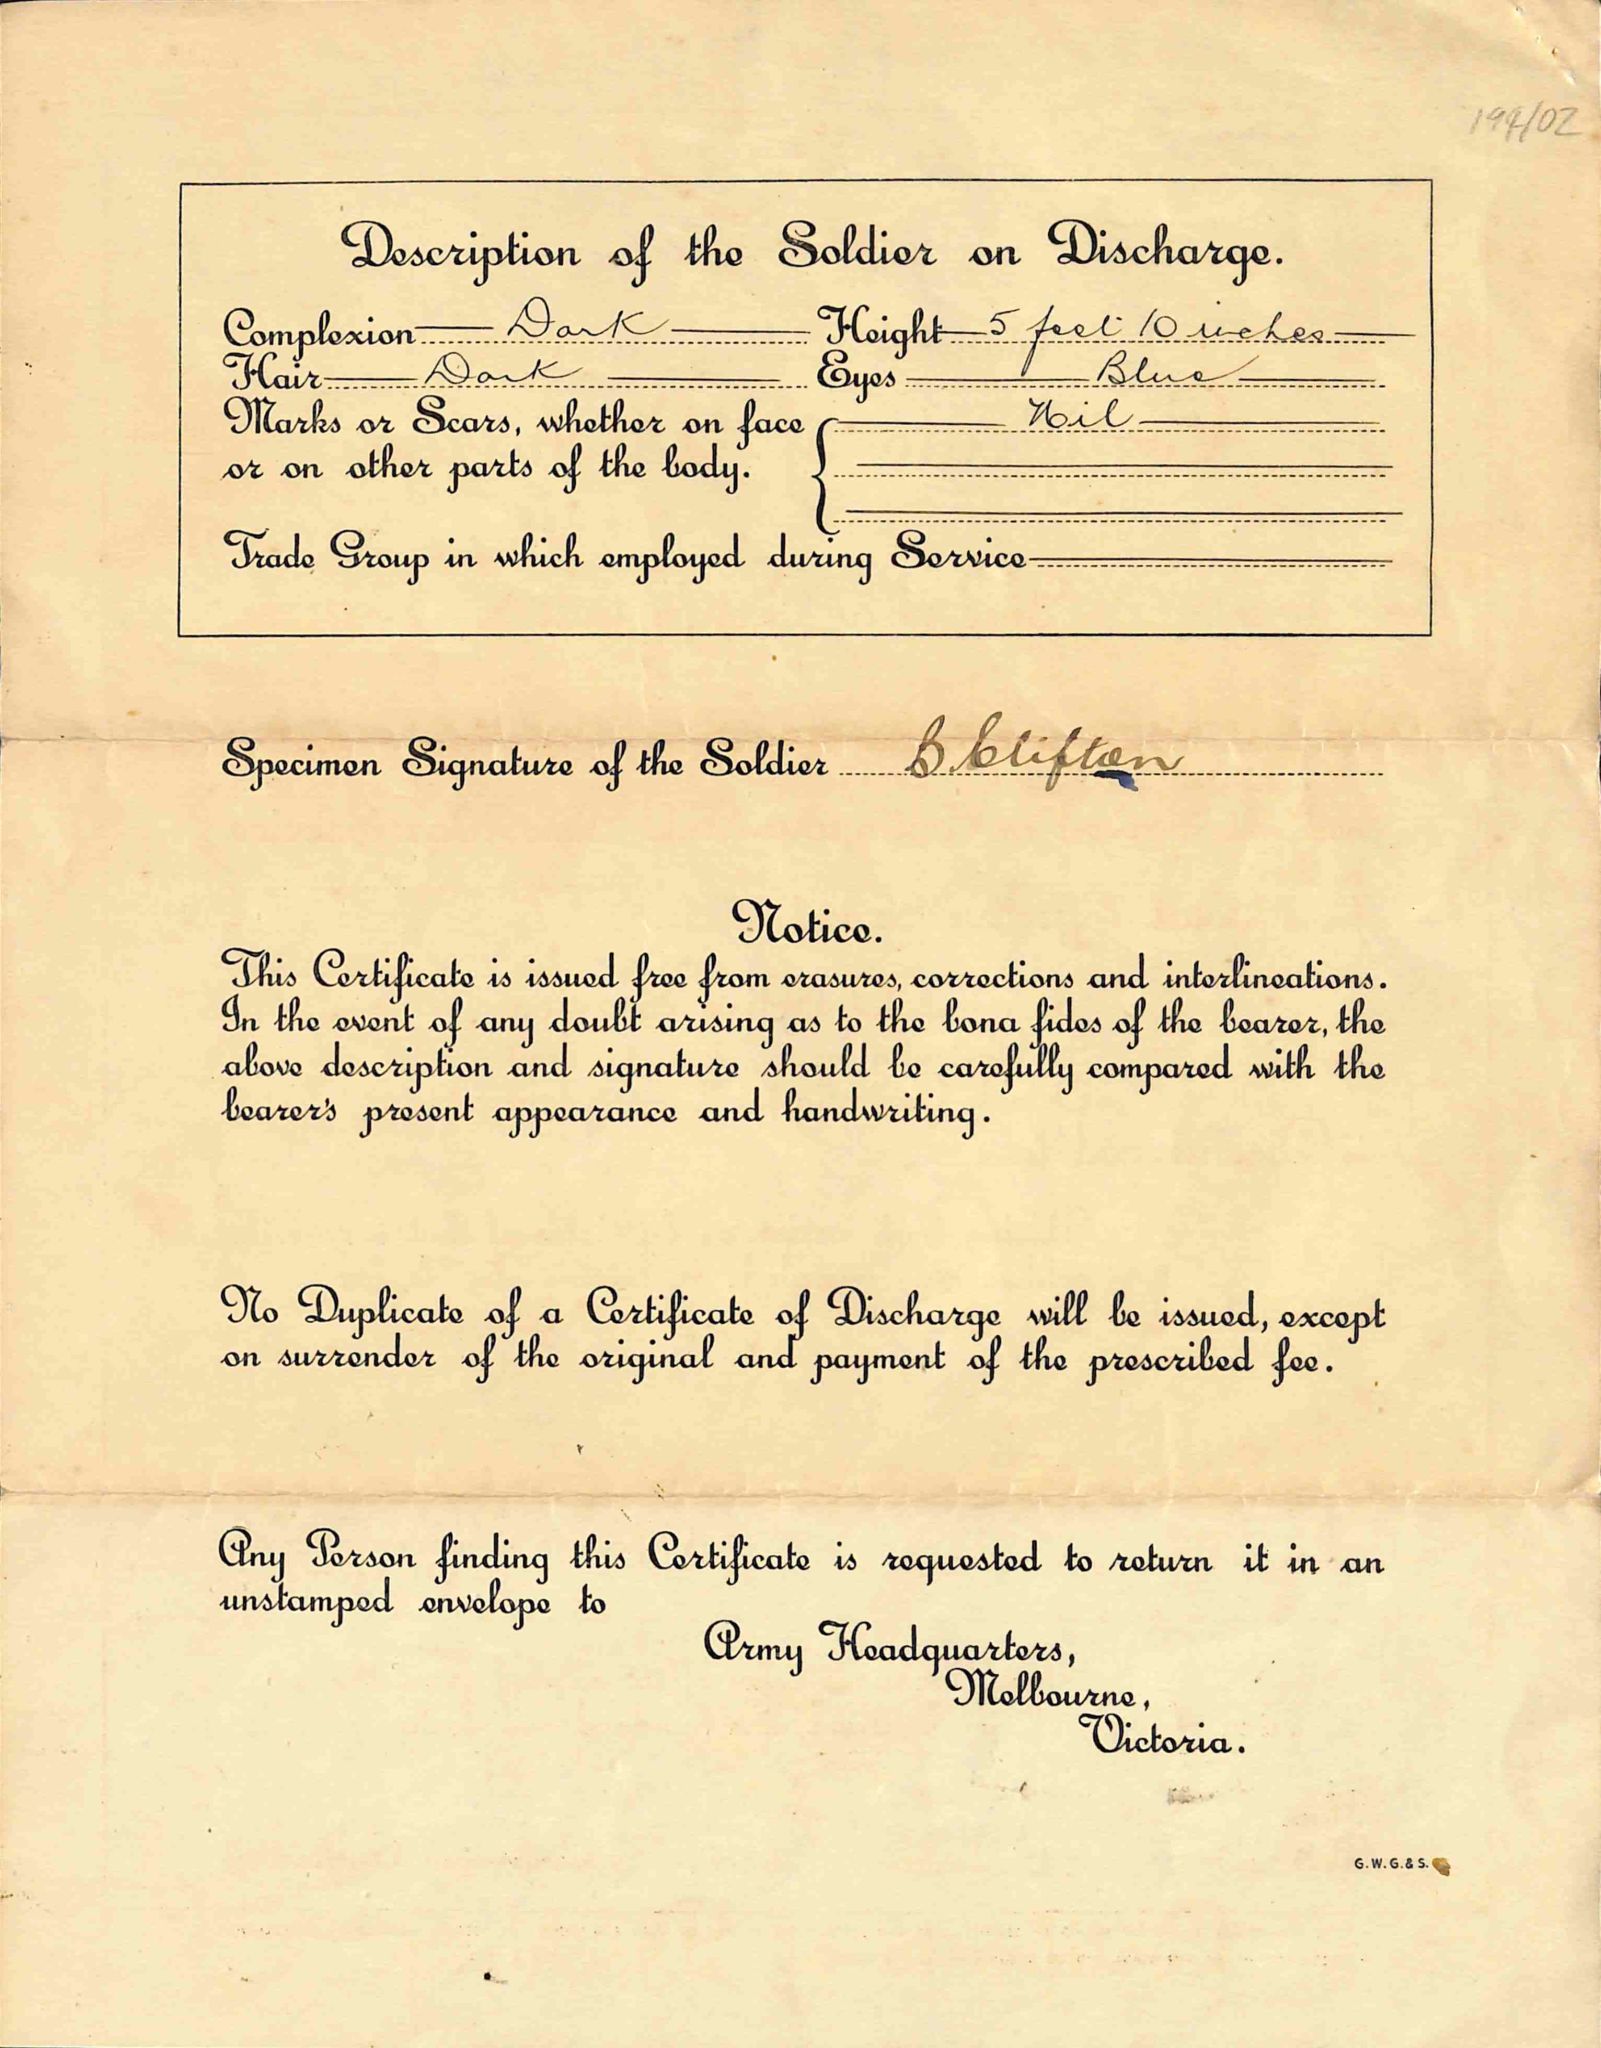 194/02
Description of the Soldier on Discharge.
Complexion Dark Height 5 feet 10 inches
Hair Dark Eyes Blue
Marks or Scars, whether on face Nil
or on other parts of the body.
Trade Group in which employed during Service
Specimen Signature of the Soldier B. Clifton
Notice.
This Certificate is issued free from erasures, corrections and interlineations.
In the event of any doubt arising as to the bona fides of the bearer, the
above description and signature should be carefully compared with the
bearer's present appearance and handwriting.
No Duplicate of a Certificate of Discharge will be issued, except
on surrender of the original and payment of the prescribed fee.
Any Person finding this Certificate is requested to return it in an
unstamped envelope to
Army Headquarters,
Melbourne,
Victoria.
G.W.G.&S.